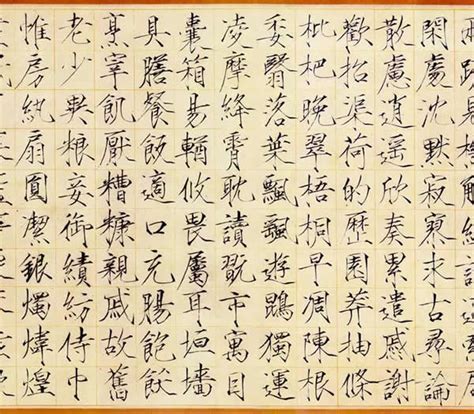 閑處沈默寂寥求古尋論
散慮逍遥欣奏累遣慼謝
歡招渠荷的歷園莽抽條
枇杷晚翠梧桐早凋陳根
委翳落葉飄飖遊鵾獨運
凌摩絳霄耽讀翫市寓目
囊箱易輶攸畏屬耳垣墻
具膳餐飯適口充腸飽飫
烹宰飢厭糟糠親戚故舊
老少異粮妾御績紡侍巾
帷房紈扇圓潔銀燭煒煌